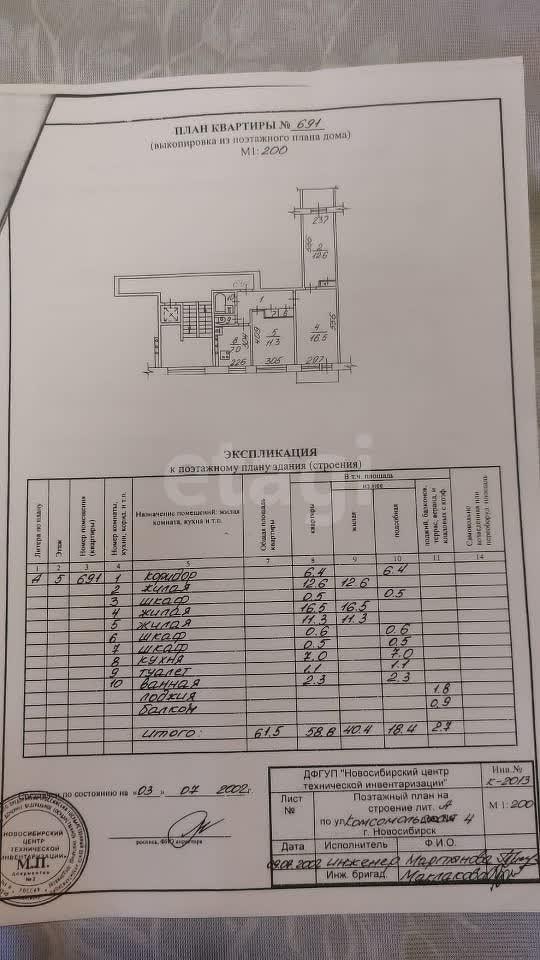 ПЛАН КВАРТИРЫ № 691
(выкопировка из поэтажного плана дома)
М1: 200
237
2
12.6
596
10
1
3
9
7 6
8
7.0
304
409
5
11.3
4
16.5
556
226
305
297
ЭКСПЛИКАЦИЯ
к поэтажному плану здания (строения)
etagi
Литера по плану
Этаж
Номер помещения (квартиры)
Номер комнаты, кухни, корид. и т.п.
Назначение помещений: жилая комната, кухня и т.п.
Общая площадь квартиры
В т.ч. площадь
квартиры
из нее
жилая
подсобная
лоджий, балконов, террас, веранд, и кладовых с коэф.
Самовольно возведенная или переоборуд. площадь
1 2 3 4 5 7 8 9 10 11 14
А 5 691 1 коридор 6.4 6.4
2 жилая 12.6 12.6
3 шкаф 0.5 0.5
4 жилая 16.5 16.5
5 жилая 11.3 11.3
6 шкаф 0.6 0.6
7 шкаф 0.5 0.5
8 кухня 7.0 7.0
9 туалет 1.1 1.1
10 ванная 2.3 2.3
лоджия 1.8
балкон 0.9
итого: 61.5 58.8 40.4 18.4 2.7
по состоянию на «03» 07 2002г.
роспись, ФИО директора
НОВОСИБИРСКИЙ
ЦЕНТР
ТЕХНИЧЕСКОЙ
ИНВЕНТАРИЗАЦИИ
М.П.
документов
№2
ДФГУП "Новосибирский центр
технической инвентаризации"
Инв.№
к-2013
Лист
№
Поэтажный план на
строение лит. А
по ул. Комсомольская 4
г. Новосибирск
М 1: 200
Дата Исполнитель Ф.И.О.
2002 инженер Мартянова
Инж. бригад. Маклакова